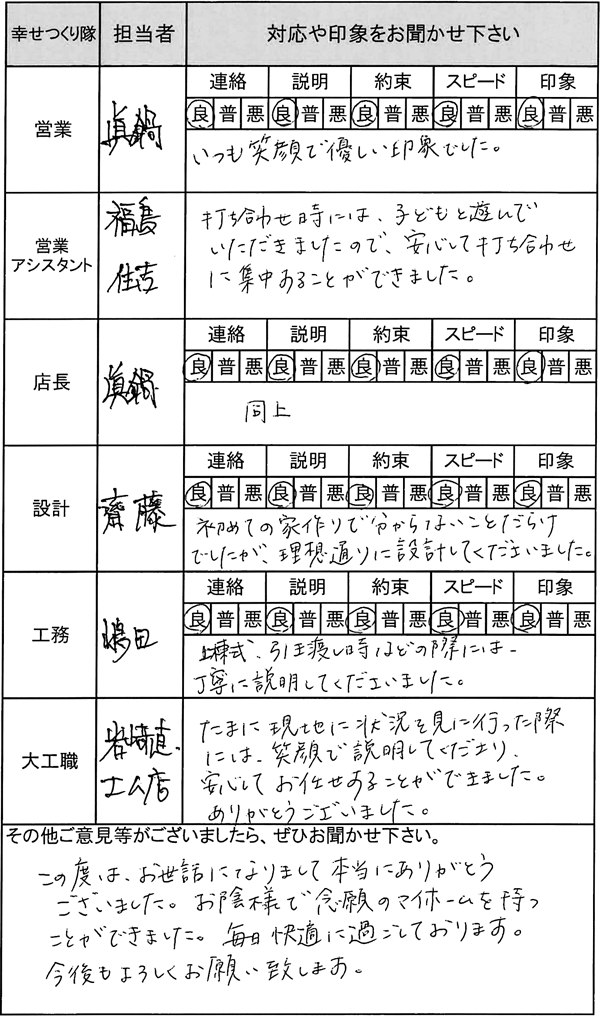 幸せつくり隊 担当者 対応や印象をお聞かせ下さい
営業 眞鍋
連絡 説明 約束 スピード 印象
良 普 悪 良 普 悪 良 普 悪 良 普 悪 良 普 悪
いつも笑顔で優しい印象でした。
営業
アシスタント
福島
住吉
打ち合わせ時には、子どもと遊んで
いただきましたので、安心して打ち合わせ
に集中することができました。
店長 眞鍋
連絡 説明 約束 スピード 印象
良 普 悪 良 普 悪 良 普 悪 良 普 悪 良 普 悪
同上
設計 齋藤
連絡 説明 約束 スピード 印象
良 普 悪 良 普 悪 良 普 悪 良 普 悪 良 普 悪
初めての家作りで分からないことだらけ
でしたが、理想通りに設計してくださいました。
工務 嶋田
連絡 説明 約束 スピード 印象
良 普 悪 良 普 悪 良 普 悪 良 普 悪 良 普 悪
上棟式、引き渡し時などの際には
丁寧に説明してくださいました。
大工職
工ム店
たまに現地に状況を見に行った際
には、笑顔で説明してくださり、
安心してお任せすることができました。
ありがとうございました。
その他ご意見等がございましたら、ぜひお聞かせ下さい。
この度は、お世話になりまして本当にありがとう
ございました。お陰様で念願のマイホームを持つ
ことができました。毎日快適に過ごしております。
今後もよろしくお願い致します。